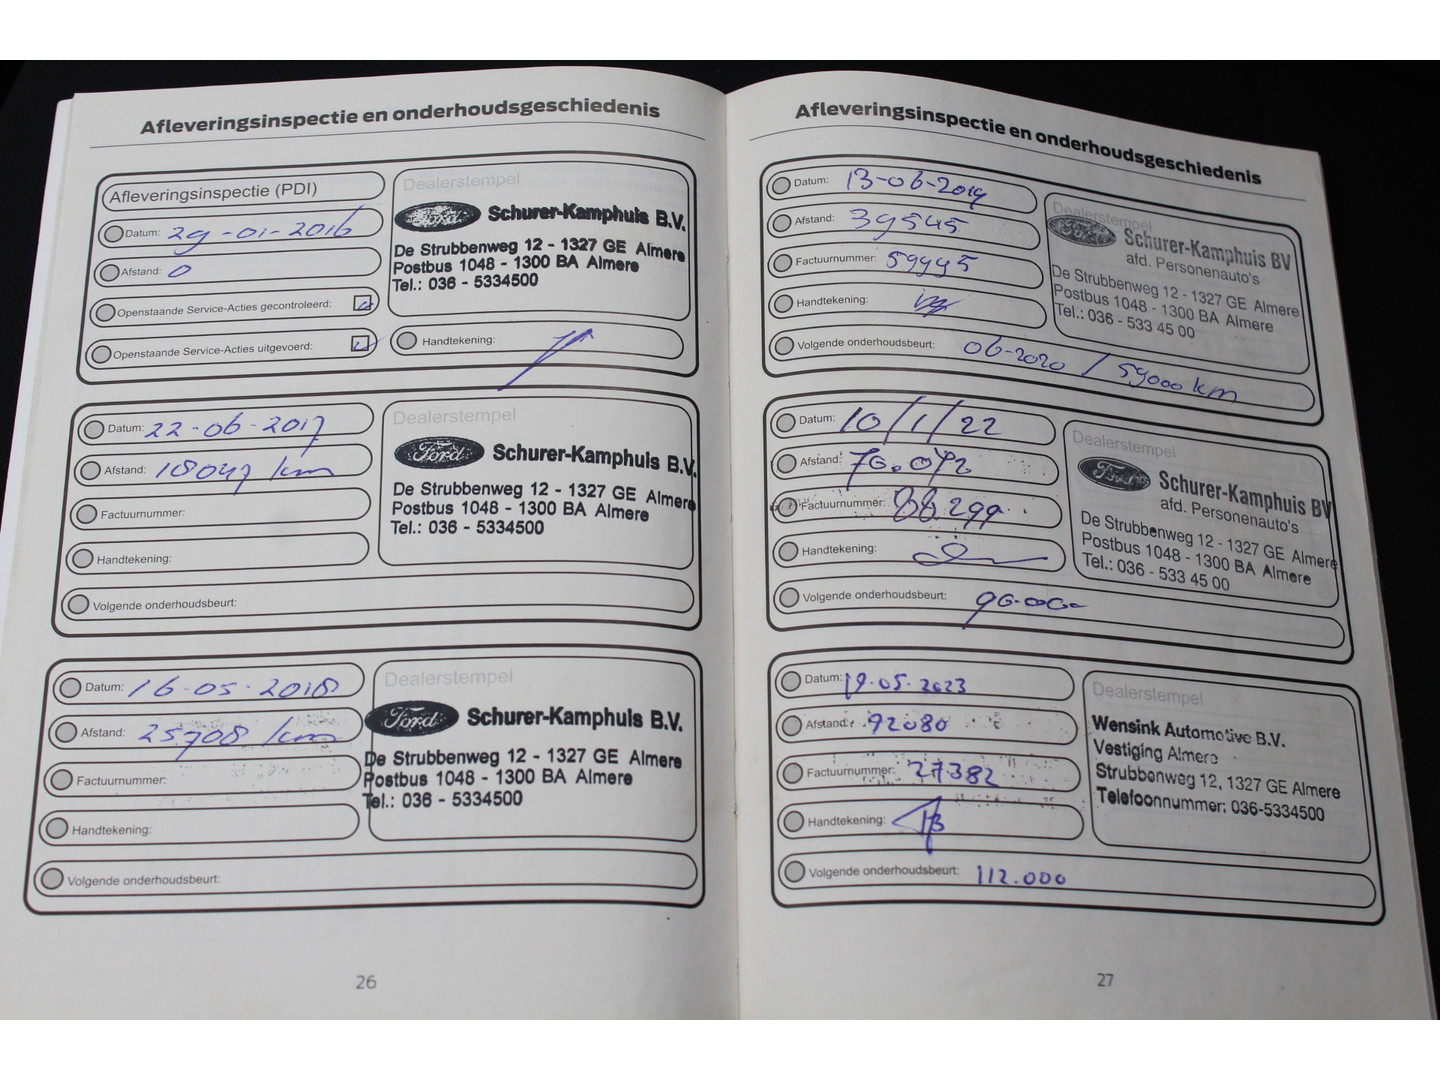 Afleveringsinspectie en onderhoudsgeschiedenis
Afleveringsinspectie (PDI)
Datum: 29-01-2016
Afstand: 0
Openstaande Service-Acties gecontroleerd:
Openstaande Service-Acties uitgevoerd:
Dealerstempel
Ford Schurer-Kamphuis B.V.
De Strubbenweg 12 - 1327 GE Almere
Postbus 1048 - 1300 BA Almere
Tel.: 036 - 5334500
Handtekening:
Datum: 22-06-2017
Afstand: 18047 km
Factuurnummer:
Handtekening:
Volgende onderhoudsbeurt:
Dealerstempel
Ford Schurer-Kamphuis B.V.
De Strubbenweg 12 - 1327 GE Almere
Postbus 1048 - 1300 BA Almere
Tel.: 036 - 5334500
Datum: 16-05-2018
Afstand: 25708 km
Factuurnummer:
Handtekening:
Volgende onderhoudsbeurt:
Dealerstempel
Ford Schurer-Kamphuis B.V.
De Strubbenweg 12 - 1327 GE Almere
Postbus 1048 - 1300 BA Almere
Tel.: 036 - 5334500
26
Afleveringsinspectie en onderhoudsgeschiedenis
Datum: 13-06-2019
Afstand: 39545
Factuurnummer: 59995
Handtekening:
Volgende onderhoudsbeurt: 06-2020 / 59000 km
Dealerstempel
Ford Schurer-Kamphuis BV
afd. Personenauto's
De Strubbenweg 12 - 1327 GE Almere
Postbus 1048 - 1300 BA Almere
Tel.: 036 - 533 45 00
Datum: 10/1/22
Afstand: 70.072
Factuurnummer: 88.299
Handtekening:
Volgende onderhoudsbeurt: 90.000-
Dealerstempel
Ford Schurer-Kamphuis BV
afd. Personenauto's
De Strubbenweg 12 - 1327 GE Almere
Postbus 1048 - 1300 BA Almere
Tel.: 036 - 533 45 00
Datum: 19-05-2023
Afstand: 92080
Factuurnummer: 27382
Handtekening:
Volgende onderhoudsbeurt: 112.000
Dealerstempel
Wensink Automotive B.V.
Vestiging Almere
Strubbenweg 12, 1327 GE Almere
Telefoonnummer: 036-5334500
27